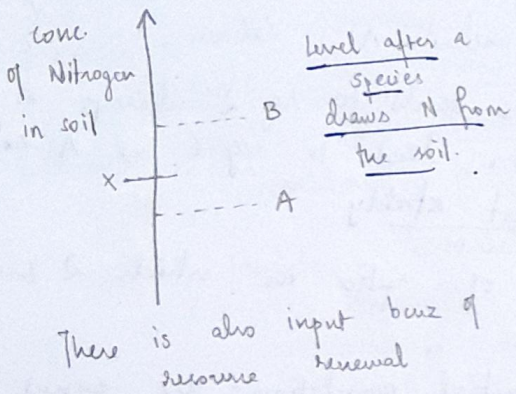 conc.
of Nitrogen
in soil
Level after a
species
draws N from
the soil.
B
X
A
There is also input bcuz of
resource renewal